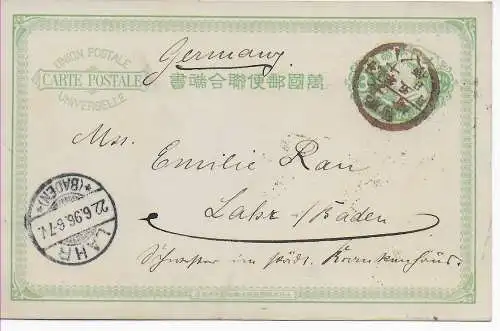 Germany.
UNION POSTALE
CARTE POSTALE
UNIVERSELLE
萬國郵便聯合端書
Mss. Emilie Rau
Lahr /Baden
Schwester im städt. Krankenhaus.
LAHR
22.6.96.6-7N.
*(BADEN)*